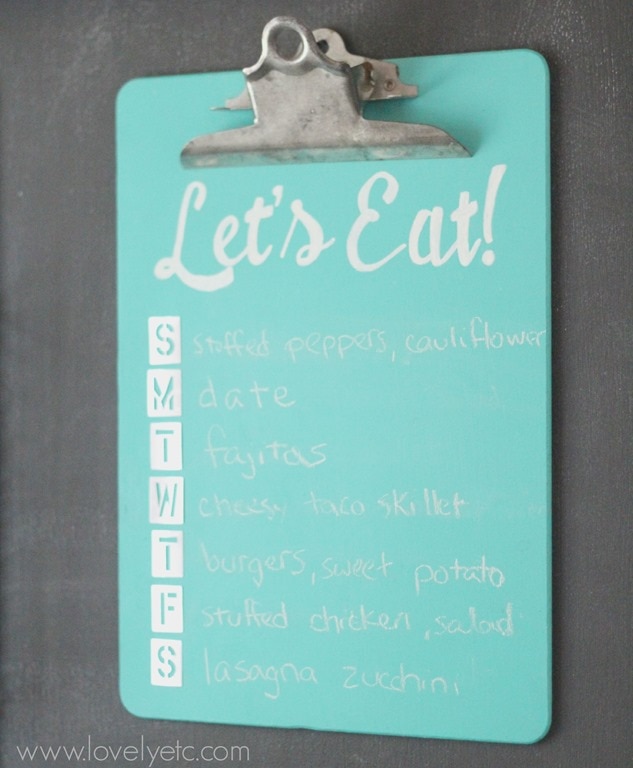 Let's Eat!
S stuffed peppers, cauliflower
M date
T fajitas
W cheesy taco skillet
T burgers, sweet potato
F stuffed chicken, salad
S lasagna zucchini
www.lovelyetc.com